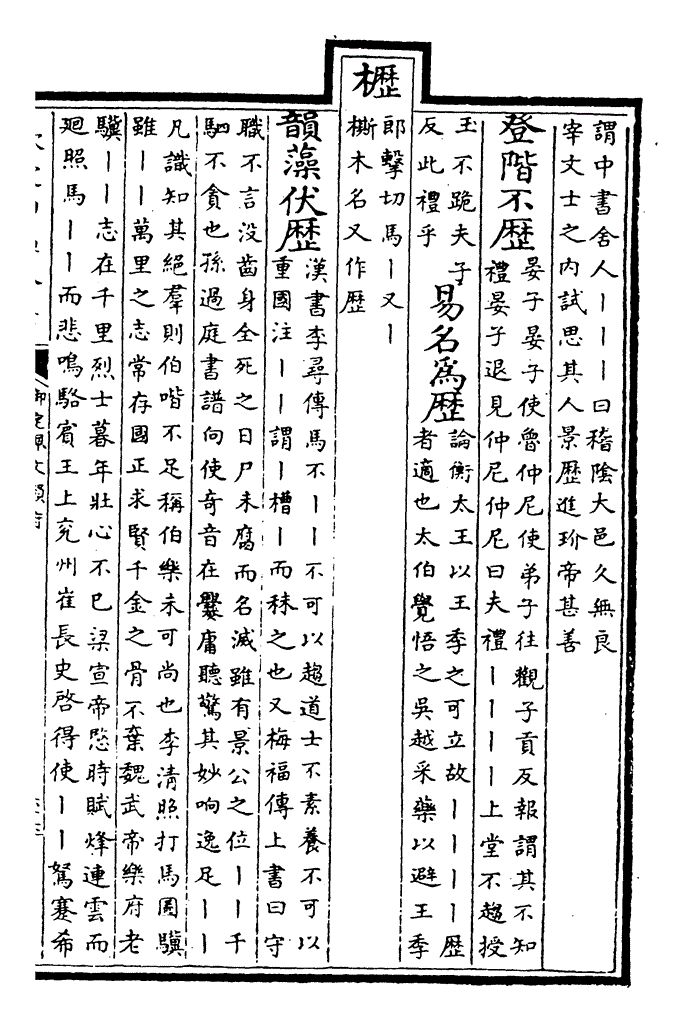 謂中書舍人｜｜｜曰稽陰大邑久無良
宰文士之内試思其人景歷進玠帝甚善
登階不歷
晏子晏子使魯仲尼使弟子往觀子貢反報謂其不知
禮晏子退見仲尼仲尼曰夫禮｜｜｜｜上堂不趨授
玉不跪夫子
反此禮乎
易名為歷
論衡太王以王季之可立故｜｜｜｜歷
者適也太伯覺悟之吳越采藥以避王季
櫪
郎擊切馬｜又｜
㯕木名又作歷
韻藻伏歷
漢書李尋傳馬不｜｜不可以趨道士不素養不可以
重國注｜｜謂｜槽｜而秣之也又梅福傳上書曰守
職不言没齒身全死之日尸未腐而名滅雖有景公之位｜｜千
駟不貪也孫過庭書譜向使奇音在爨庸聽驚其妙响逸足｜｜
凡識知其絕羣則伯喈不足稱伯樂未可尚也李清照打馬圖驥
雖｜｜萬里之志常存國正求賢千金之骨不棄魏武帝樂府老
驥｜｜志在千里烈士暮年壯心不已梁宣帝愍時賦烽連雲而
廻照馬｜｜而悲鳴駱賓王上兖州崔長史啓得使｜｜駑蹇希